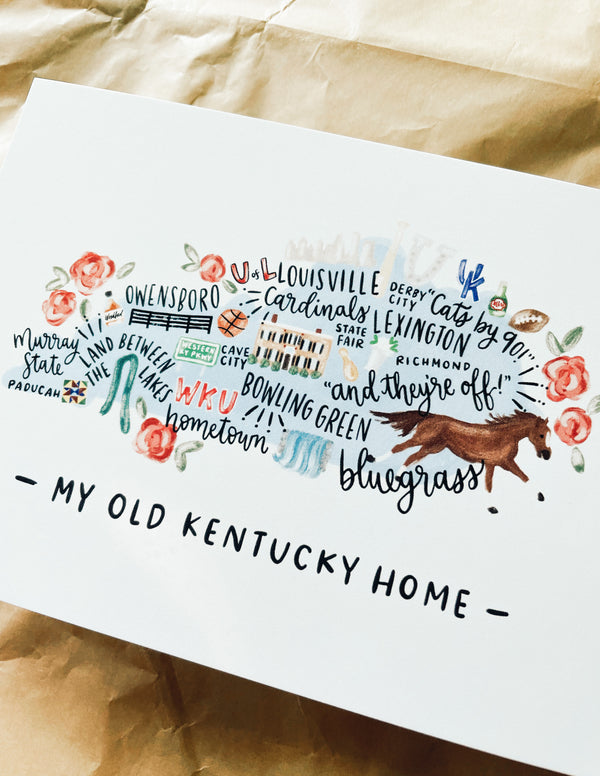 OWENSBORO
U of L LOUISVILLE
Cardinals
DERBY
CITY
UK
"Cats by 90!"
STATE
FAIR
LEXINGTON
RICHMOND
"and they're off!"
murray
State
PADUCAH
LAND BETWEEN
THE LAKES
WESTERN
KY PKWY
CAVE
CITY
WKU
BOWLING GREEN
hometown
bluegrass
- MY OLD KENTUCKY HOME -